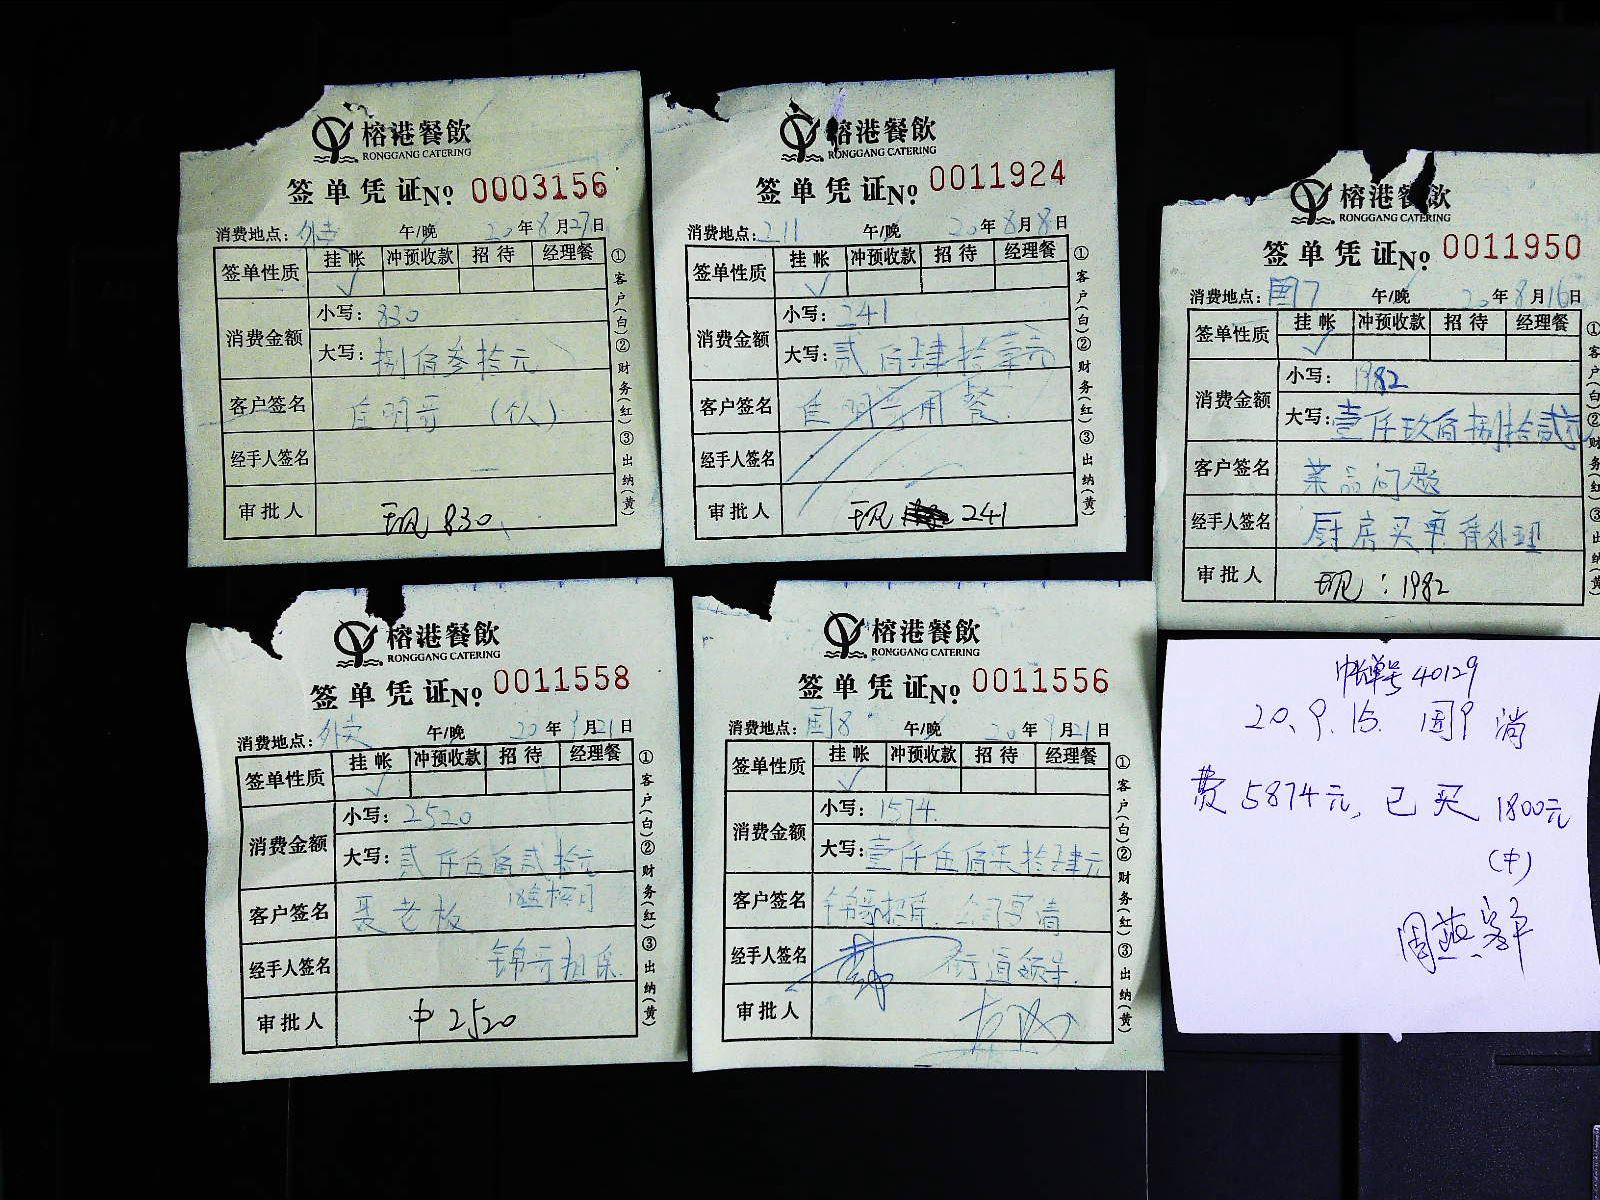 榕港餐飲
RONGGANG CATERING
签单凭证No. 0003156
消费地点: 外卖 午/晚 20年8月27日
签单性质 挂帐 冲预收款 招待 经理餐
√
消费金额 小写: 830
大写: 捌佰参拾元
客户签名 佳明哥 (个人)
经手人签名
审批人 现 830
①客户(白)②财务(红)③出纳(黄)
榕港餐飲
RONGGANG CATERING
签单凭证No. 0011924
消费地点: 211 午/晚 20年8月8日
签单性质 挂帐 冲预收款 招待 经理餐
√
消费金额 小写: 241
大写: 贰佰肆拾壹元
客户签名 佳明哥用餐
经手人签名
审批人 现 241
①客户(白)②财务(红)③出纳(黄)
榕港餐飲
RONGGANG CATERING
签单凭证No. 0011950
消费地点: 围7 午/晚 20年8月16日
签单性质 挂帐 冲预收款 招待 经理餐
√
消费金额 小写: 1982
大写: 壹仟玖佰捌拾贰元
客户签名 菜品问题
经手人签名 厨房买单待处理
审批人 现: 1982
①客户(白)②财务(红)③出纳(黄)
榕港餐飲
RONGGANG CATERING
签单凭证No. 0011558
消费地点: 外卖 午/晚 20年9月21日
签单性质 挂帐 冲预收款 招待 经理餐
√
消费金额 小写: 2520
大写: 贰仟伍佰贰拾元
客户签名 聂老板
经手人签名 锦哥担保.
审批人 中 2520
①客户(白)②财务(红)③出纳(黄)
榕港餐飲
RONGGANG CATERING
签单凭证No. 0011556
消费地点: 围8 午/晚 20年9月21日
签单性质 挂帐 冲预收款 招待 经理餐
√
消费金额 小写: 1574.
大写: 壹仟伍佰柒拾肆元
客户签名 锦哥担保.
经手人签名 街道领导.
审批人
①客户(白)②财务(红)③出纳(黄)
帐单号 40129
20.9.15. 围9 消
费5874元, 已买1800元
(中)